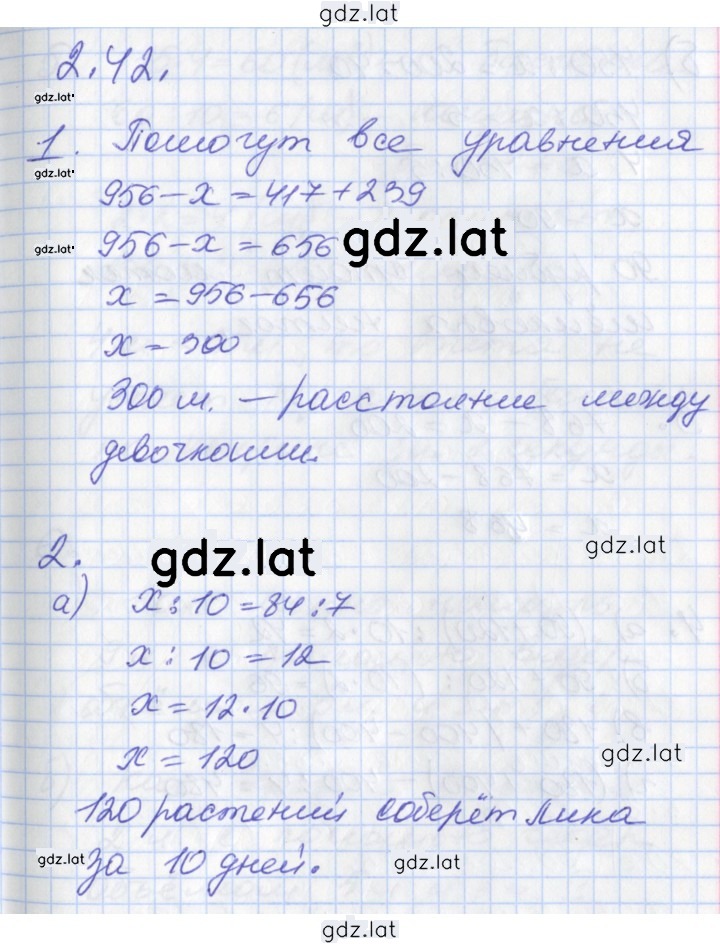 gdz.lat
2.42.
gdz.lat
1. Помогут все уравнения
gdz.lat
956-x=417+239
gdz.lat 956-x=656 gdz.lat
x=956-656
x=300
300 м. - расстояние между
девочками.
2. gdz.lat gdz.lat
а) x:10=84:7
x:10=12
x=12·10
x=120 gdz.lat
120 растений соберёт Лика
gdz.lat за 10 дней. gdz.lat
gdz.lat